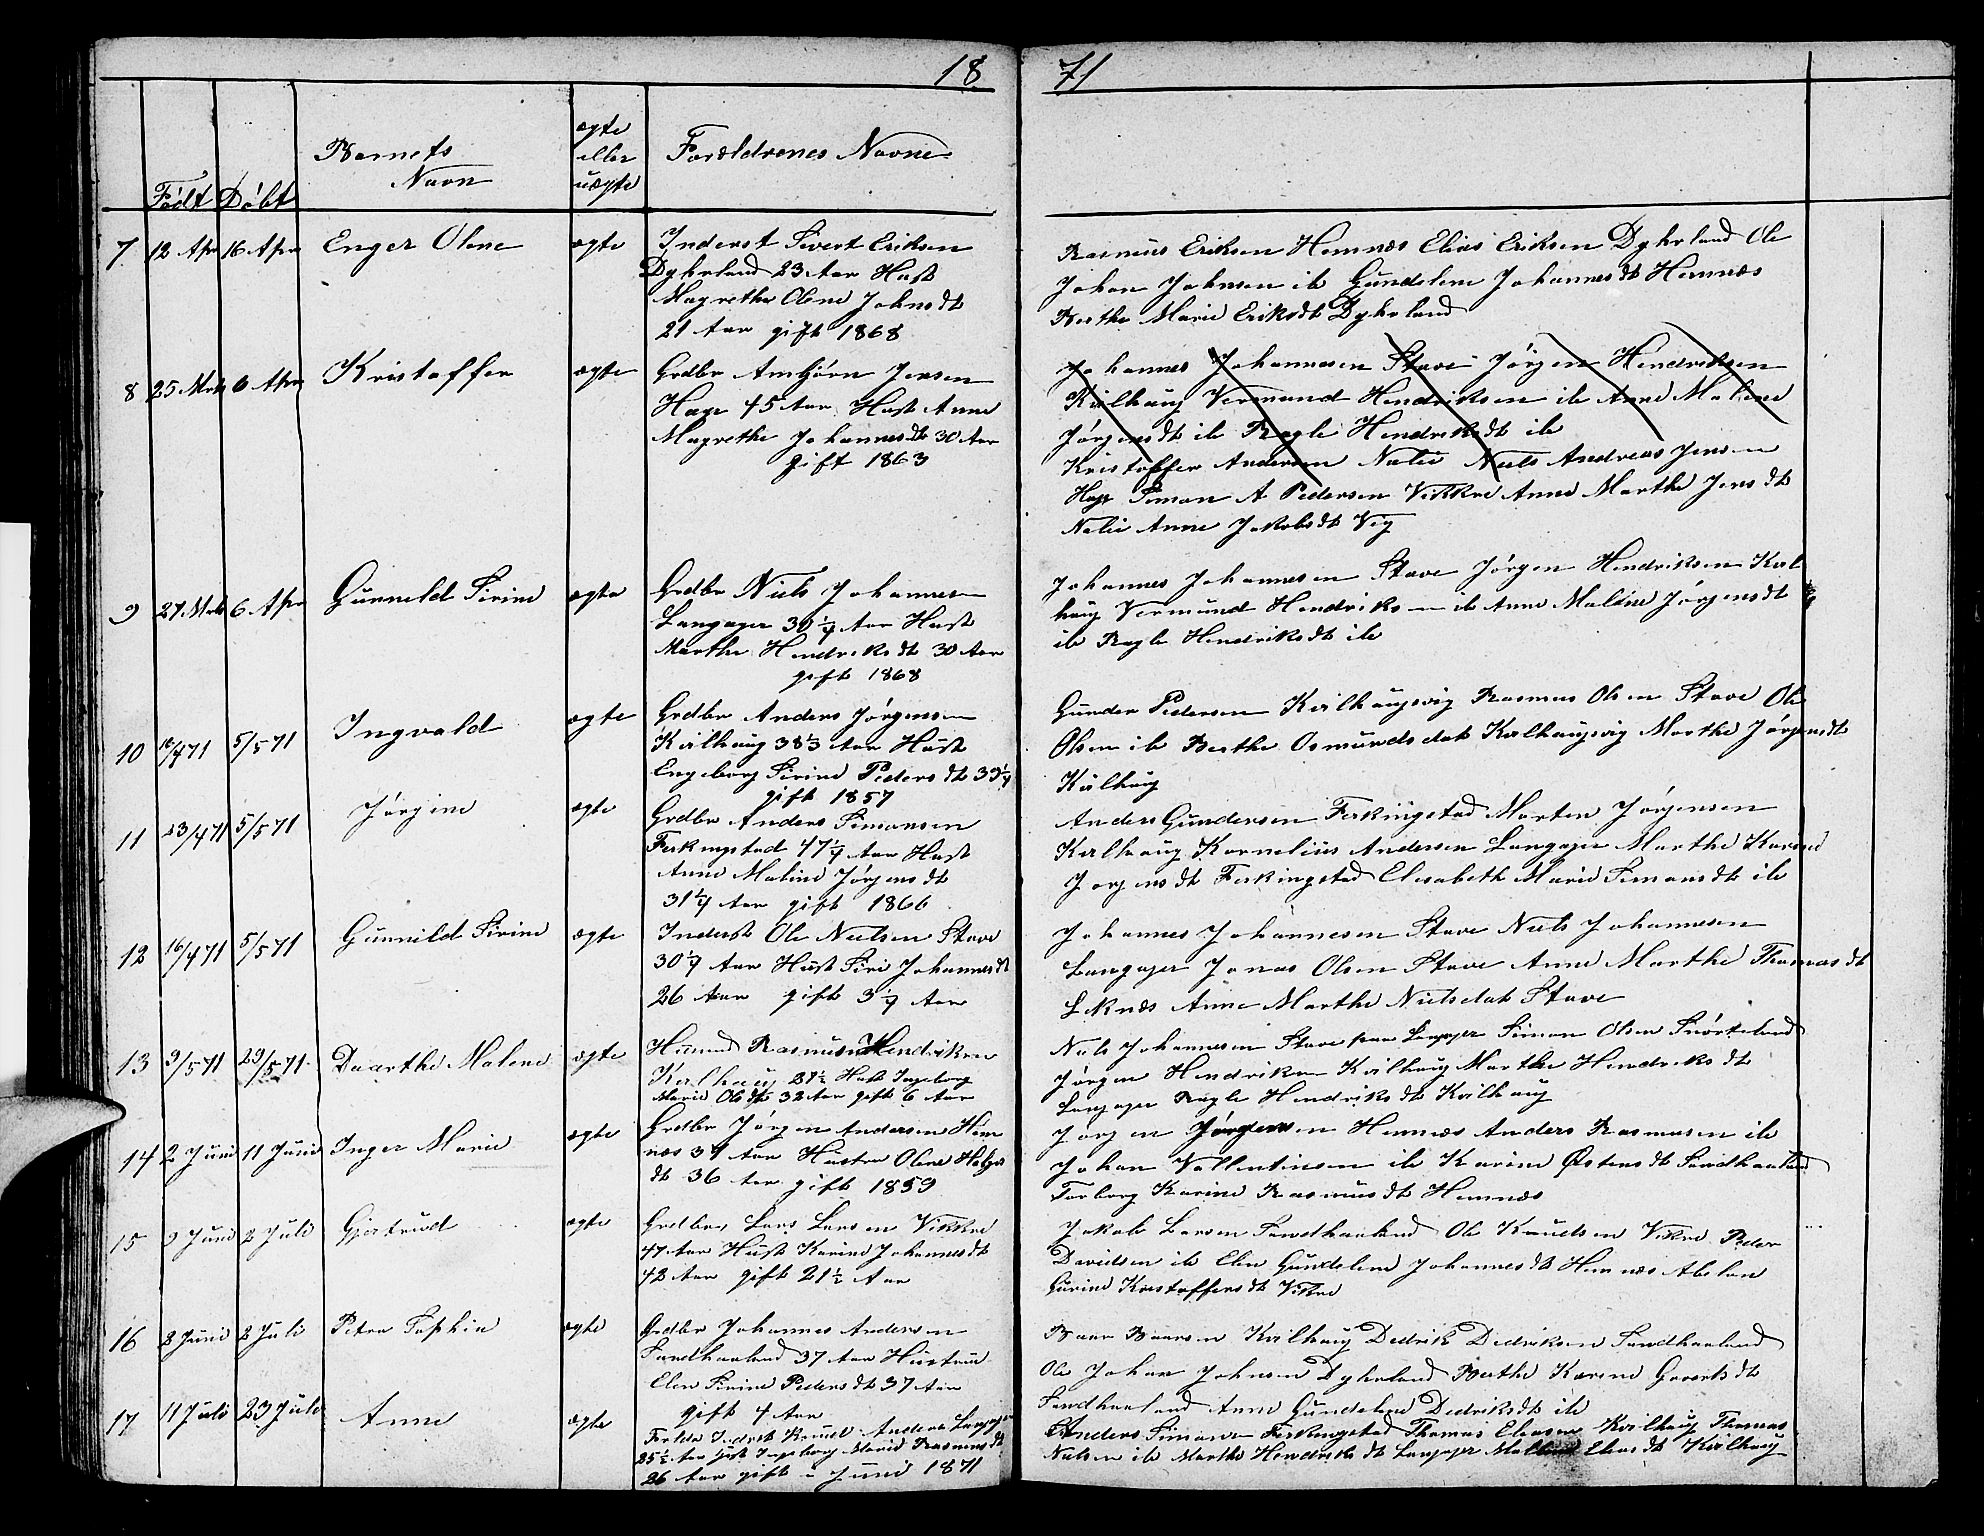 18 71
Født
Døbt
Barnets
Navn
ægte
eller
uægte
Forældrenes Navne
7 12 Apr 16 Apr Enger Olene ægte
Inderst Sivert Eriksen
Dyhrland 23 Aar Hust
Magrethe Olene Johnsdt
21 Aar gift 1868
Rasmus Eriksen Hemnæs Elias Eriksen Dyhrland Ole
Johan Johnsen ib Gundelene Johannesdt Hemnæs
Berthe Marie Eriksdt Dyhrland
8 25 Mrts 6 Apr Kristoffer ægte
Grdbr Ambjørn Jensen
Hage 45 Aar Hust Anne
Magrethe Johannesdt 30 Aar
gift 1863
Johannes Johannesen Stave Jørgen Hendriksen
Kvilhaug Vermund Hendriksen ib Anne Malene
Jørgensdt ib Ragle Hendriksdt ib
Kristoffer Andersen Nalie Niels Andreas Jensen
Hage Simon A Pedersen Vikkre Anne Marthe Jensdt
Nalie Anne Jakobsdt Vig
9 27 Mrts 6 Apr Gunneld Sirine ægte
Grdbr Niels Johannesen
Langager 30 1/4 Aar Hust
Marthe Hendriksdt 30 Aar
gift 1868
Johannes Johannesen Stave Jørgen Hendriksen Kvil
haug Vermund Hendriksen ib Anne Maline Jørgensdt
ib Ragle Hendriksdt ib
10 5/5 71 Ingvald ægte
Grdbr Anders Jørgensen
Kvilhaug 38 1/3 Aar Hust
Engeborg Sirine Pedersdt 33 1/4
gift 1857
Gunder Pedersen Kvilhaugsvig Rasmus Olsen Stave Ole
Olsen ib Berthe Osmundsdat Kvilhaugsvig Marthe Jørgensdt
Kvilhaug
11 23/4 71 5/5 71 Jørgine ægte
Grdbr Anders Simonsen
Ferkingstad 47 1/4 Aar Hust
Anne Maline Jørgensdt
31 1/4 Aar gift 1866
Anders Gundersen Ferkingstad Morten Jørgensen
Kvilhaug Kornelius Andersen Langager Marthe Karine
Jørgensdt Ferkingstad Elisabeth Marie Simonsdt ib
12 16/4 71 5/5 71 Gunnild Sirine ægte
Inderst Ole Nielsen Stave
30 1/4 Aar Hust Siri Johannesdt
26 Aar gift 3 1/4 Aar
Johannes Johannesen Stave Niels Johannesen
Langager Jonas Olsen Stave Anne Marthe Thomasdt
Leknæs Anne Marthe Nielsdat Stave
13 3/5 71 29/5 71 Daarthe Malene ægte
Husmd Rasmus Hendriksen
Kvilhaug 27 1/2 Hust Ingeborg
Marie Olsdt 32 Aar gift 6 Aar
Niels Johannesen Stave paa Langager Simon Olsen Snørteland
Jørgen Hendriksen Kvilhaug Marthe Hendriksdt
Langager Ragle Hendriksdt Kvilhaug
14 2 Juni 11 Juni Inger Marie ægte
Grdbr Jørgen Andersen Hem
næs 37 Aar Hustru Olene Helge
dt 36 Aar gift 1859
Jørgen Jørgensen Hemnæs Anders Rasmusen ib
Johan Vallentinsen ib Karine Østensdt Sandhaaland
Torborg Karine Rasmusdt Hemnæs
15 9 Juni 2 Juli Gjertrud ægte
Grdbr Lars Larsen Vikkre
47 Aar Hust Karine Johannesdt
42 Aar gift 21 1/2 Aar
Jakob Larsen Sandhaaland Ole Knudsen Vikre Peder
Davidsen ib Elen Gundelene Johannesdt Hemnæs Abelone
Gurine Kristoffersdt Vikre
16 8 Juni 2 Juli Petra Sophie ægte
Grdbr Johannes Andersen
Sandhaaland 37 Aar Hustru
Elen Sirine Pedersdt 37 Aar
gift 4 Aar
Baar Baarsen Kvilhaug Dedrik Dedriksen Sandhaaland
Ole Johan Johnsen Dyhrland Berthe Karene Govertsdt
Sandhaaland Anne Gundelene Dedriksdt ib
17 11 Juli 23 Juli Anne ægte
Forlda Inderst Knud Anders Langager
25 1/2 Aar Hust Ingeborg Marie Rasmusdt
26 Aar gift i Juni 1871
Anders Simonsen Ferkingstad Thomas Eliasen Kvilhaug Thomas
Nielsen ib Marthe Hendriksdt Langager Malene Eliasdt Kvilhaug